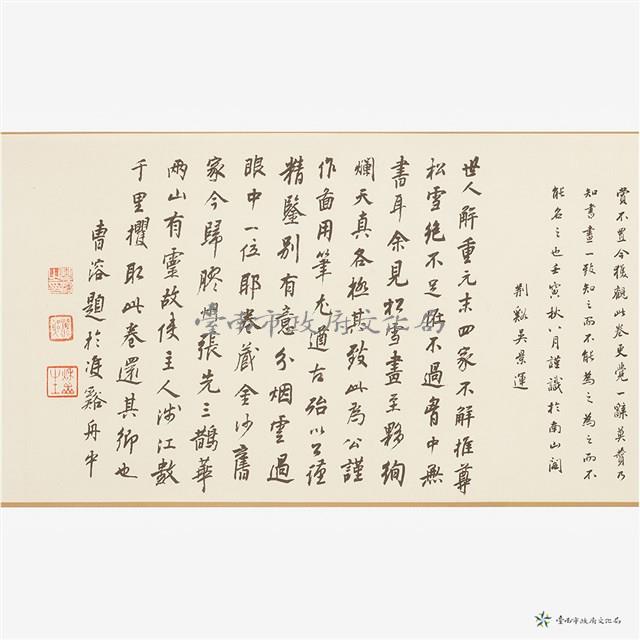 賞不置今獲觀此卷更覺一辭莫贊乃
知書畫一致知之而不能為之為之而不
能名之也壬寅秋八月謹識於南山閣
荊谿吳景運
世人解重元末四家不解推尊
松雪絶不足在不過胷中無
書耳余見松雪畫至夥絢
爛天真各極其致此為公謹
作面用筆尤遒古殆以公謹
精鑒別有意分烟雲過
眼中一位耶卷藏金沙舊
家今歸膠州張先三鵲華
兩山有靈故使主人涉江數
千里攫取此卷還其鄉也
曹溶題於漫谿舟中
臺南市政府文化局
臺南市政府文化局